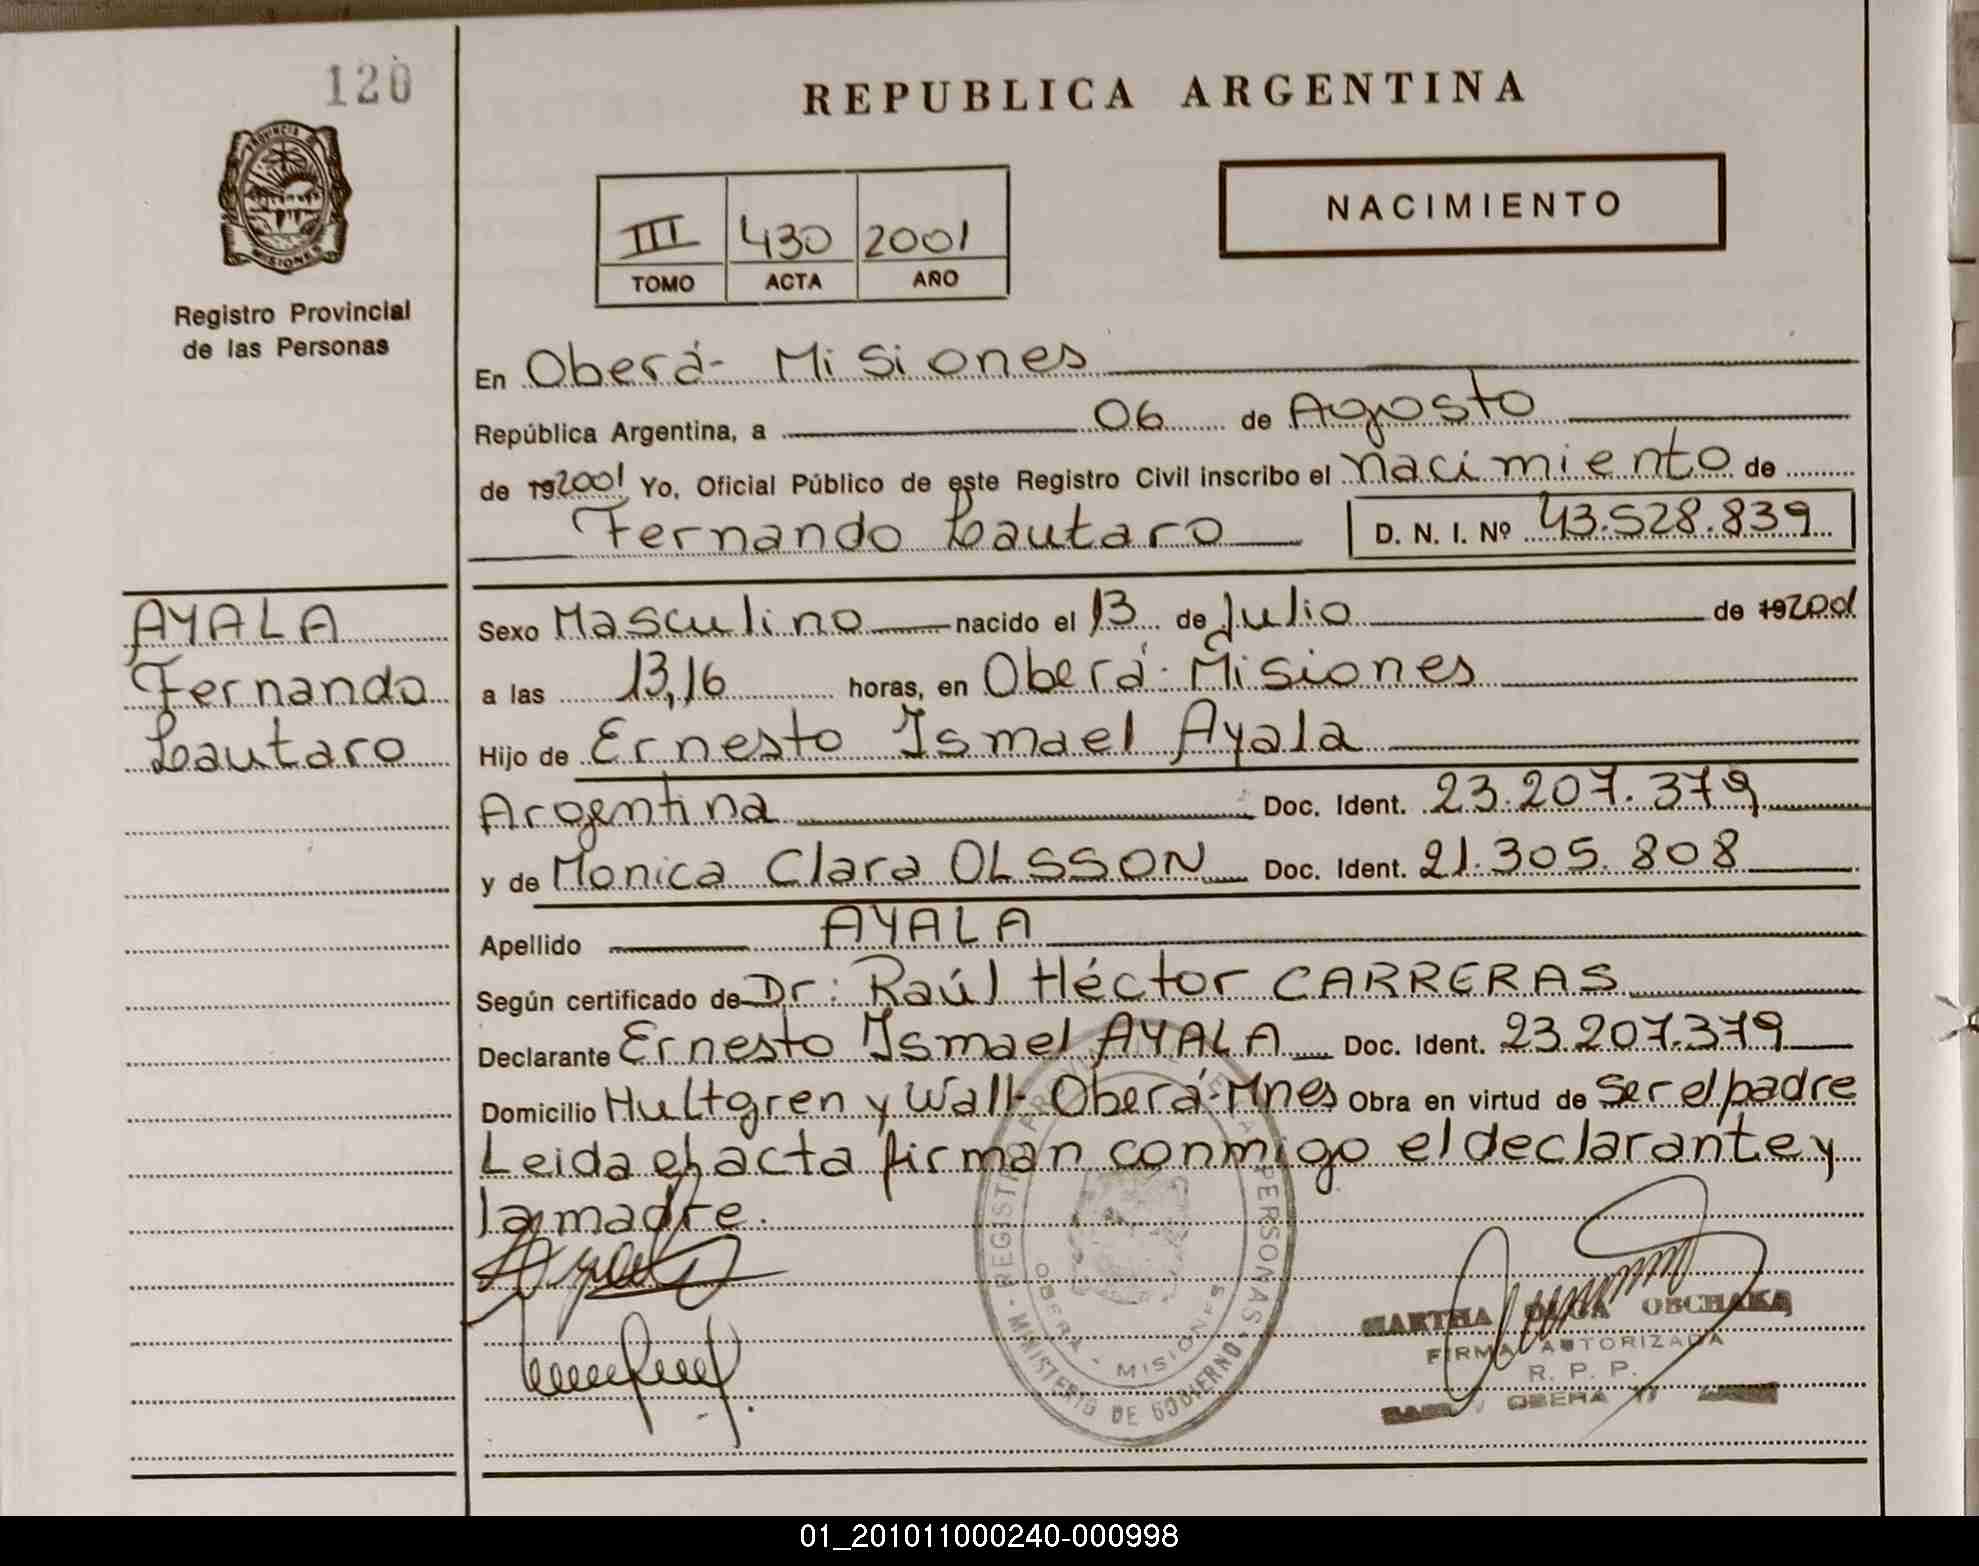 120
REPUBLICA ARGENTINA
PROVINCIA DE
MISIONES
III 430 2001
TOMO ACTA AÑO
NACIMIENTO
Registro Provincial
de las Personas
En Oberá- Misiones
República Argentina, a 06 de Agosto
de 192001 Yo, Oficial Público de este Registro Civil inscribo el nacimiento de
Fernando Lautaro D. N. I. Nº 43.528.839
AYALA
Fernando
Lautaro
Sexo Masculino nacido el 13 de Julio de 192001
a las 13,16 horas, en Oberá- Misiones
Hijo de Ernesto Ismael Ayala
Argentina Doc. Ident. 23.207.379
y de Monica Clara OLSSON Doc. Ident. 21.305.808
Apellido AYALA
Según certificado de Dr: Raúl Héctor CARRERAS
Declarante Ernesto Ismael AYALA Doc. Ident. 23.207.379
Domicilio Hultgren y Wall- Oberá-Mnes Obra en virtud de ser el padre
Leida el acta firman conmigo el declarante y
la madre.
REGISTRO PERSONAS
OBERA - MISIONES
MINISTERIO DE GOBIERNO
MARTHA OLGA OBCHAKA
FIRMA AUTORIZADA
R. P. P.
OBERA
01_201011000240-000998